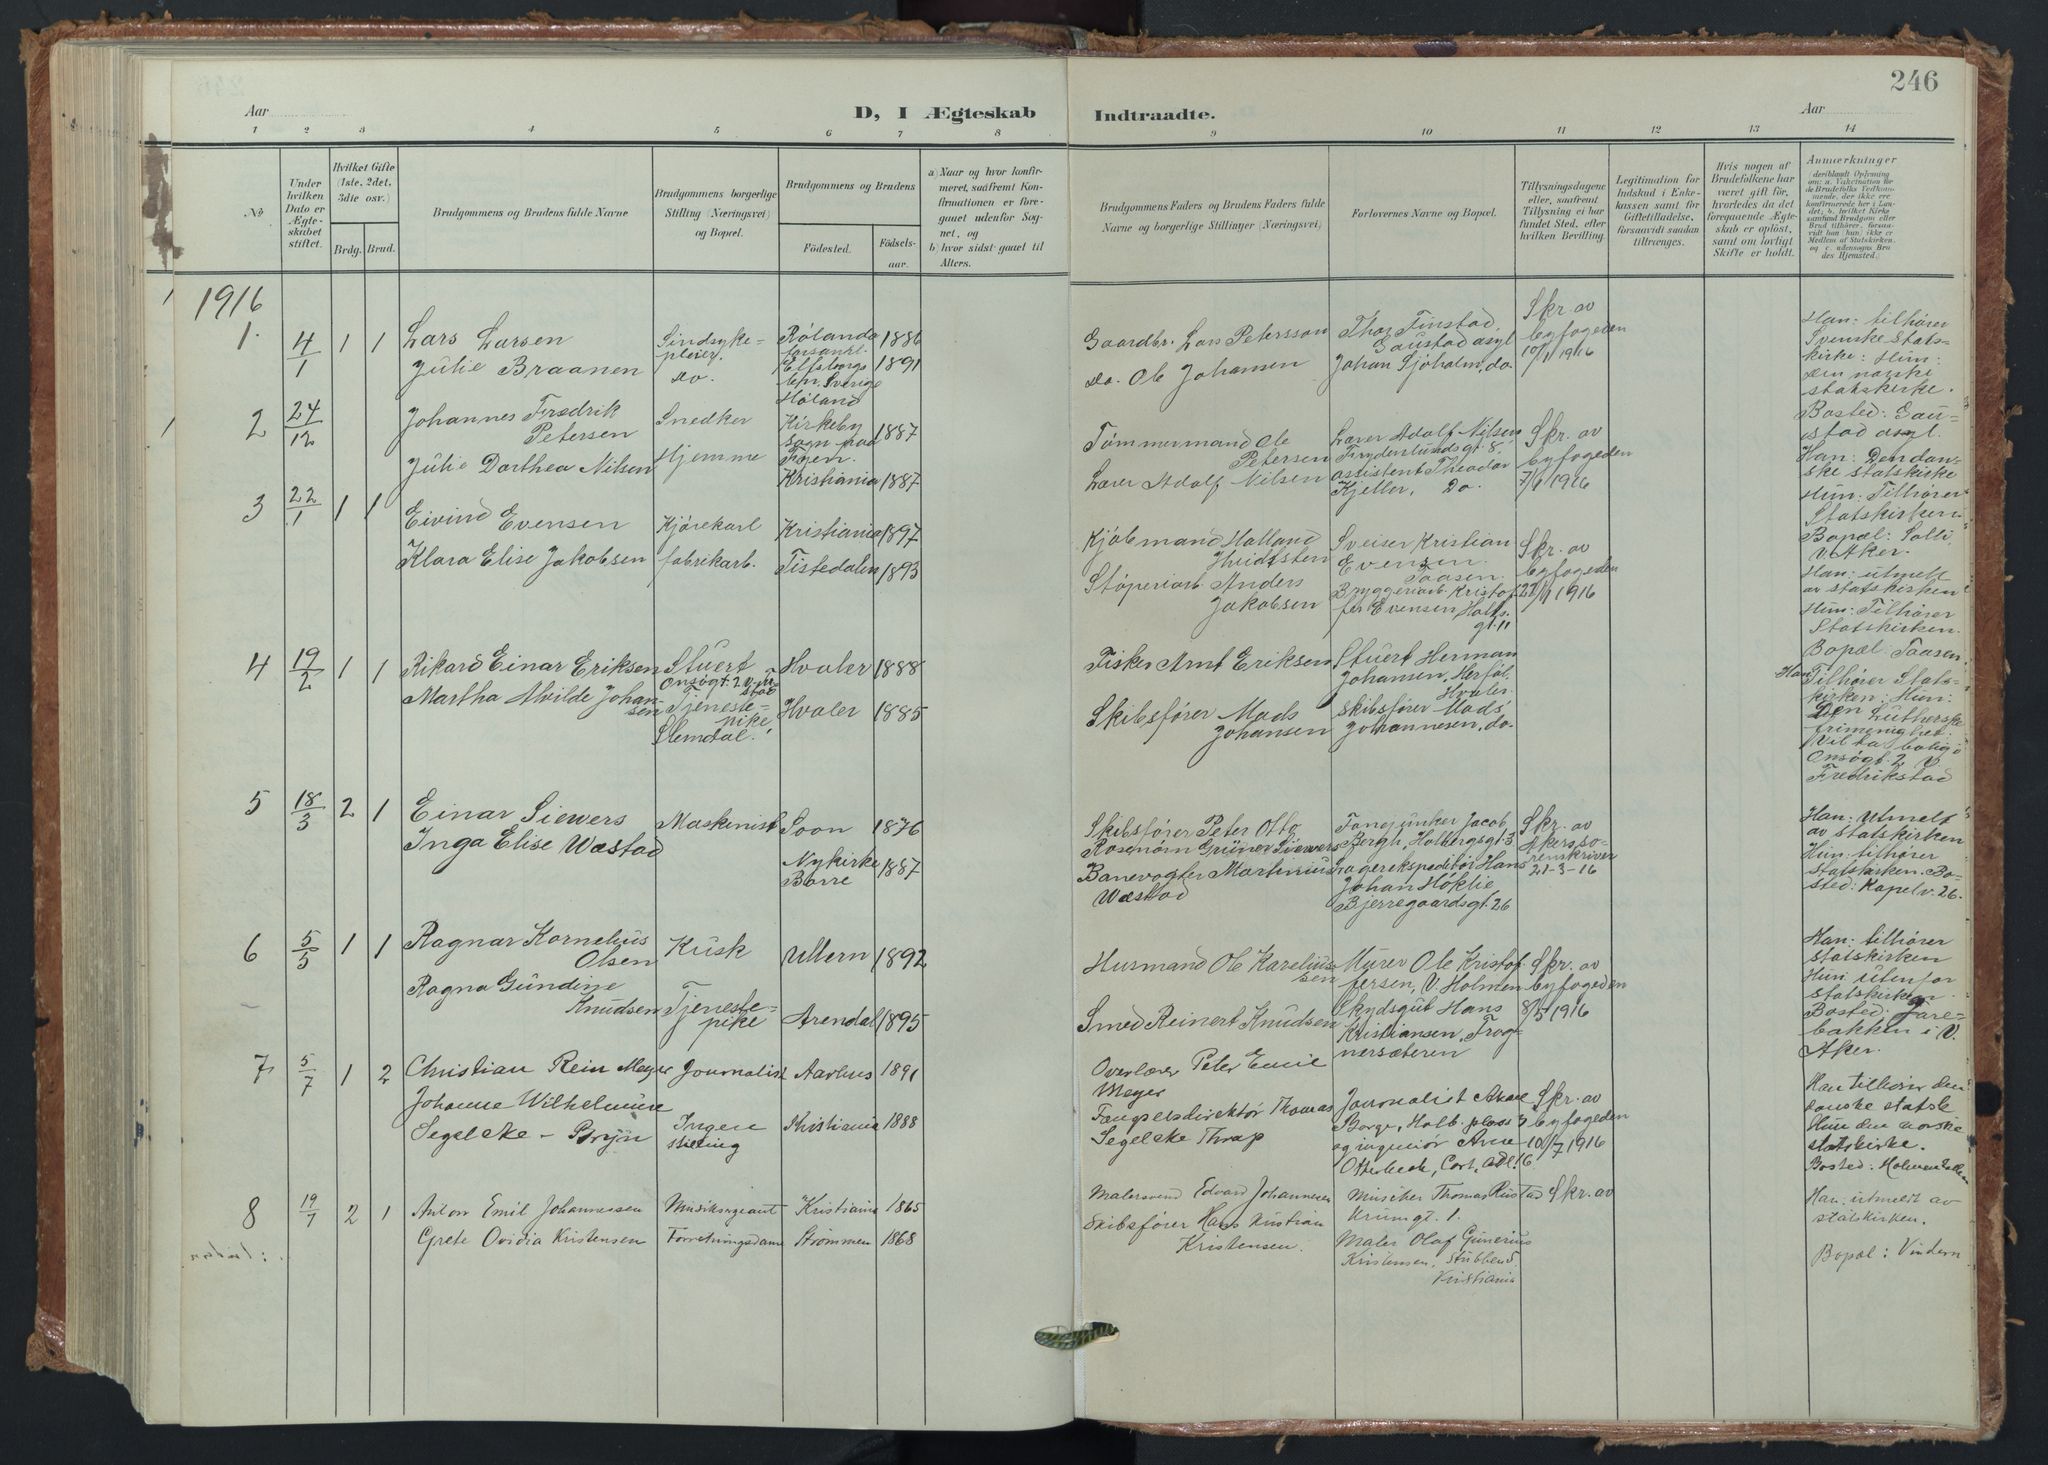 246
Aar
D, I Ægteskab
Indtraadte.
Aar
1 2 3 4 5 6 7 8
9 10 11 12 13 14
№
Under hvilken Dato er Ægteskabet stiftet.
Hvilket Gifte (1ste, 2det, 3die osv.)
Brdg. Brud.
Brudgommens og Brudens fulde Navne
Brudgommens borgerlige Stilling (Næringsvei) og Bopæl.
Brudgommens og Brudens
Födested.
Födsels-aar.
a) Naar og hvor konfirmeret, saafremt Konfirmationen er foregaaet udenfor Sognet, og
b) hvor sidst gaaet til Alters.
Brudgommens Faders og Brudens Faders fulde Navne og borgerlige Stillinger (Næringsvei)
Forlovernes Navne og Bopæl.
Tillysningsdagene eller, saafremt Tillysning ei har fundet Sted, efter hvilken Bevilling.
Legitimation for Indskud i Enkekassen samt for Giftetilladelse, forsaavidt saadan tiltrænges.
Hvis nogen af Brudefolkene har været gift før, hvorledes da det foregaaende Ægteskab er oplöst, samt om lovligt Skifte er holdt.
Anmerkninger
1916
1. 4/1 1 1
Lars Larsen
Julie Braanen
Sindsyke-
pleier.
do.
Rölanda
forsaml.
Elfsborgs
len. Sverige
Høland
1886
1891
Gaardbr. Lars Petersson
do. Ole Johansen
Thor Finstad,
Gaustad asyl
Johan Sjøholm, do.
Skr. av
byfogeden
10/1 1916
Han: tilhører
Svenske Stats-
kirke: Hun:
den norske
statskirke.
Bosted: Gau-
stad asyl.
2 24/12
Johannes Fredrik
Petersen
Julie Dorthea Nilsen
Snedker
Hjemme
Kirkeby
sogn paa
Fyen.
Kristiania
1887
1887
Tømmermand Ole
Petersen
Lærer Adolf Nilsen
Lærer Adolf Nilsen,
Frydenlundsgt 8,
assistent Theodor
Kjeller, Do.
Skr. av
byfogeden
7/1 1916
Han: Den dan-
ske statskirke
Hun: Tilhører
Statskirken
Bopæl: Solli
v. Aker.
3 22/1 1 1
Eivind Evensen
Klara Elise Jakobsen
Kjørekarl
fabrikarb.
Kristiania
Tistedalen
1897
1893
Kjøbmand Halland
Hvidtsten
Støperiarb. Anders
Jakobsen
Sveiser Kristian
Evensen
Saasen.
Bryggeriarb. Kristof-
fer Evensen, Holts
gt. 11
Skr. av
byfogeden
22/1 1916
Han: utmelt
av statskirken
Hun: Tilhører
Statskirken.
Bopæl: Saasen
4 19/2 1 1
Rikard Einar Eriksen
Martha Alvilde Johan-
sen
Stuert
Onsøgt. 2 v. Fr.
stad
Tjeneste-
pike
Slemdal.
Hvaler
Hvaler
1888
1885
Fisker Arnt Eriksen
Skibsfører Mads
Johansen
Stuert Herman
Johansen, Herføl,
Hvaler.
Skibsfører Mads
Johannesen, do.
Han Tilhører Stats-
kirken: Hun:
Den Lutherske
frimenighet:
Vil ta bolig i
Onsøgt. 2 v.
Fredrikstad
5 18/3 2 1
Einar Siewers
Inga Elise Wæstad
Maskinist
Soon
Nykirke
Borre
1876
1887
Skibsfører Peter Otto
Rosenørn Grüner Siewers
Banevogter Martinius
Wæstad
Fanejunker Jacob
Bergh, Holbergsgt 3
Lagerekspeditør Hans
Johan Høklie
Bjerregaardsgt. 26
Skr. av
Akers so-
renskriver
21-3-16
Han: Utmelt
av statskirken
Hun: tilhører
statskirken. Bo-
sted: Kapelv. 26.
6 5/5 1 1
Ragnar Kornelius
Olsen
Ragna Gundine
Knudsen
Kusk
Tjeneste-
pike
Ullern
Arendal
1892
1895
Husmand Ole Karelius-
sen
Smed Reinert Knudsen
Murer Ole Kristof-
fersen, V. Holmen
Skydsgut Hans
Kristiansen, Frog-
nersæteren
Skr. av
byfogeden
8/5 1916
Han: tilhører
statskirken
Hun: utenfor
statskirken
Bosted: Jare-
bakken i V.
Aker.
7 5/7 1 2
Christian Rein Meyer
Johanne Wilhelmine
Segelcke - Bryn
Journalist
Ingen
stilling
Aarhus
Kristiania
1891
1888
Overlærer Peter Emil
Meyer
Fængselsdirektör Thomas
Segelcke Thrap
Journalist Aase
Borge, Holb. plass 3
og ingeniör Arne
Otterbech, Cort. Adl. 16
Skr. av
byfogeden
10/7 1916
Han tilhörer den
danske statsk.
Hun den norske
statskirke.
Bosted: Holmenkollen
8 19/7 2 1
Anton Emil Johannessen
Grete Ovidia Kristensen
Musiksergeant
Forretningsdame
Kristiania
Strømmen
1865
1868
Malersvend Edvard Johannesen
Skibsfører Hans Kristian
Kristensen.
Murscher Thomas Rustad
Krumgt. 1.
Maler Olaf Gunerius
Kristensen, Stubbend
Kristiania
Skr. av
Han: utmeldt av
statskirken.
Bopæl: Vindern